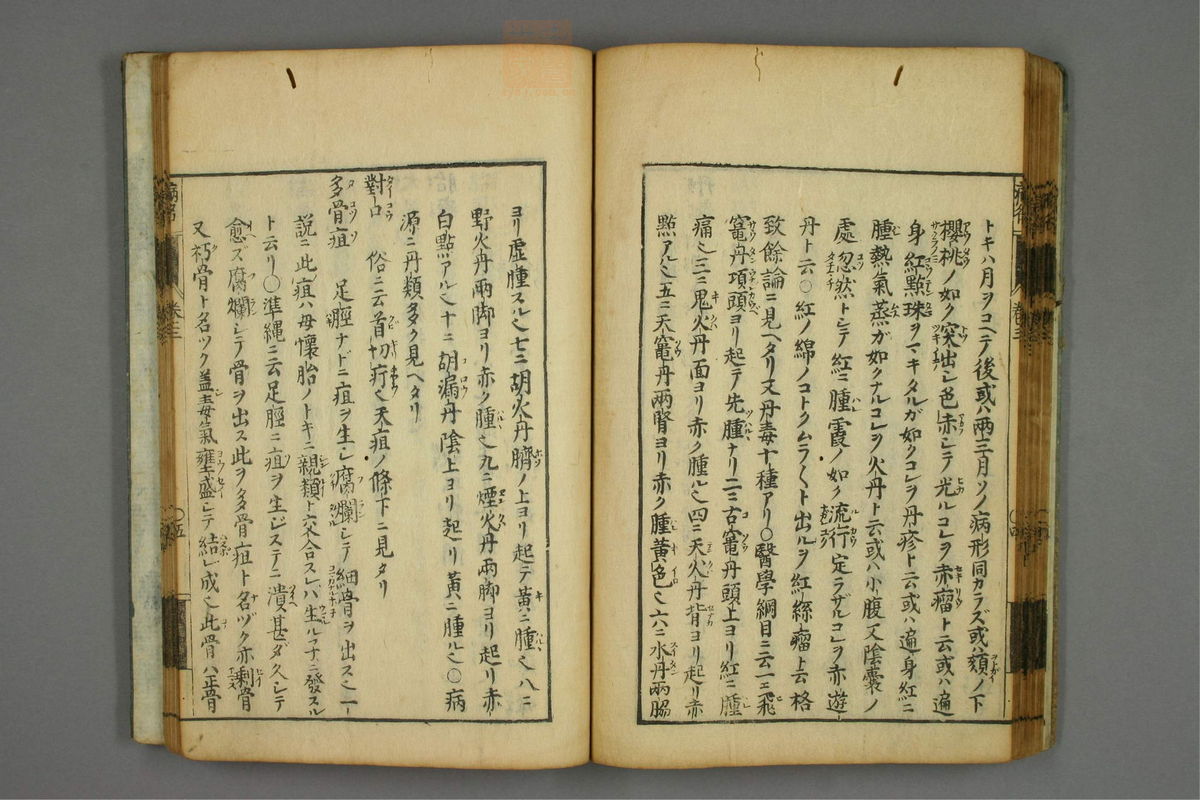 トキハ月ヲコヘテノ後或ハ兩三月ソノ病形同カラズ或ハ頬ノ下
櫻桃ノ如ク突出シ色赤シテ光ルコレヲ赤瘤ト云或ハ遍
身紅點珠ヲマキタルガ如クコレヲ丹疹ト云或ハ遍身紅ニ
腫熱氣蒸ガ如クナルコレヲ火丹ト云或ハ小腹又陰嚢ノ
處忽然トシテ紅ニ腫霞ノ如ク流行定ラザルコレヲ赤遊
丹ト云○紅ノ綿ノコトクムラ〱ト出ルヲ紅絲瘤ト云格
致餘論ニ見ヘタリ又丹毒十種アリ○醫學綱目ニ云一ニ飛
竈丹項頭ヨリ起テ先腫ナリ二ニ古竈丹頭上ヨリ紅ニ腫
痛也三ニ鬼火丹面ヨリ赤ク腫ル也四ニ天火丹背ヨリ起リ赤
點アル也五ニ天竈丹兩腎ヨリ赤ク腫黄色也六ニ水丹兩脇
ヨリ虚腫スル也七ニ胡火丹臍ノ上ヨリ起テ黄ニ腫也八ニ
野火丹兩脚ヨリ赤ク腫也九ニ煙火丹兩脚ヨリ起リ赤
白點アル也十ニ胡漏丹陰上ヨリ起リ黄ニ腫ル也○病
源ニ丹類多ク見ヘタリ
對口 俗ニ云首切疔也天疽ノ條下ニ見タリ
多骨疽 足脛ナドニ疽ヲ生シ腐爛シテ細骨ヲ出ス也一
説ニ此疽ハ母懷胎ノトキニ親類ト交合スレバ生ルヽ子ニ發スル
ト云リ○準縄ニ云足脛ニ疽ヲ生ジステニ潰甚ダ久シテ
愈ズ腐爛シテ骨ヲ出ス此ヲ多骨疽ト名ヅク亦剰骨
又朽骨ト名ツク蓋毒氣壅盛シテ結ビ成也此骨ハ正骨